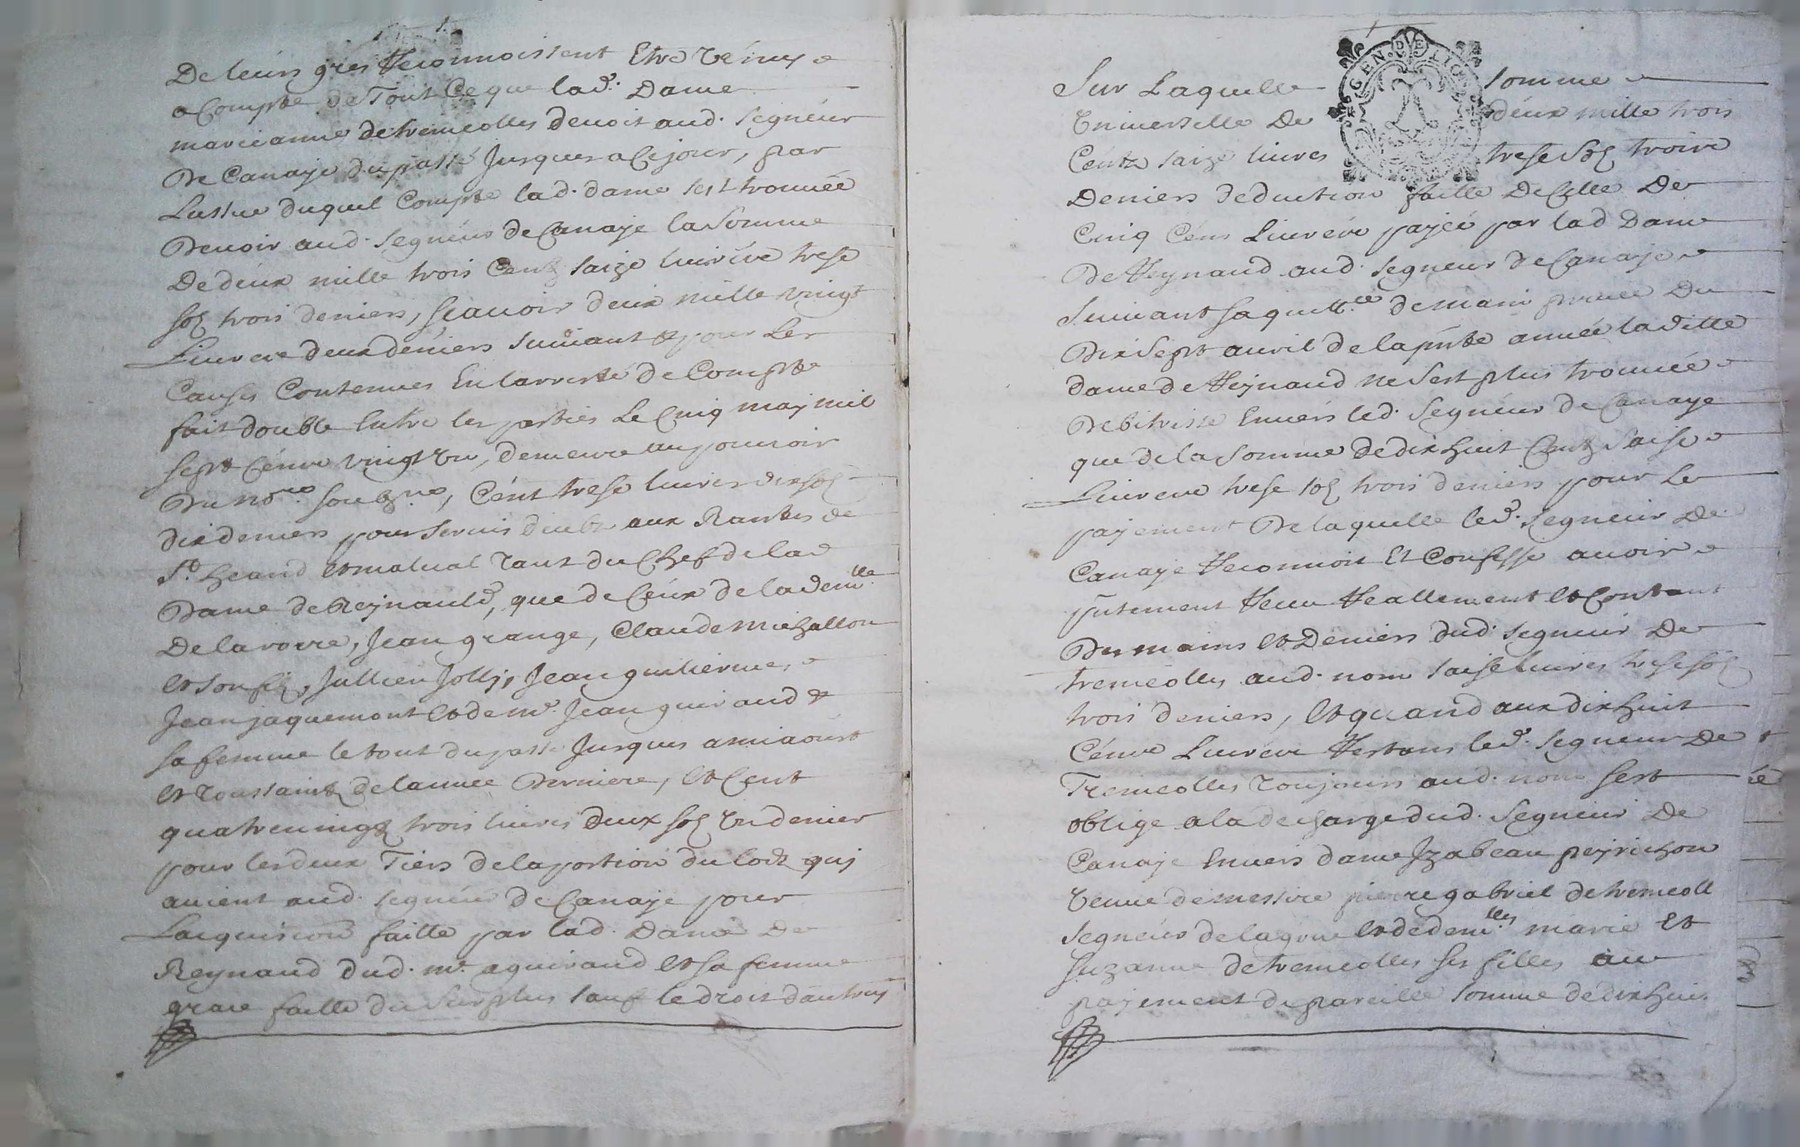 De leurs gres Reconnoissent Etre Venus
a Compte de Tout Ce que lad. Dame
marieanne de tremeolles devoit aud. Segneur
De Canaye du passé Jusques a Ce jour, par
Lissue duquel Compte lad. dame sest trouvée
Devoir aud. Segneur de Canaye la Somme
De deux mille trois Cents saize livres trese
sols trois deniers, scavoir deux mille vingt
Livres deux deniers suivant & pour Les
Causes Contenues En larresté de Compte
fait double Entre les parties Le Cinq may mil
sept Cens vingt un, demeure au pouvoir
Du nore. soubzne, Cent trese livres dix sols
dix deniers pour servis deubs aux Rantes de
St. heand et malval tant du Chef de la
Dame de Reynauld, que de Ceux de la demlle
Delavorre, Jean grange, Claude michallon
et son fils, Jullien Jolly, Jean guilierme,
Jean jaquemont et de me. Jean guiraud &
sa femme le tout du passé Jusques a miaoust
et toussaints de lannée Derniere, et Cent
quatrevingts trois livres deux sols un denier
pour les deux Tiers de la portion du lods quj
avient aud. segneur de Canaye pour
Lacquision faitte par lad. Dame De
Reynaud dud. me. aguiraud et sa femme
grace faitte du surplus sauf le droit dautruy
Sur Laquelle somme
Universelle De deux mille trois
Cents saize livres trese sols trois
Deniers deduction faitte De Celle De
Cinq Cens Livres payée par lad Dame
De Reynaud aud. segneur de Canaye
Suivant sa quittce. de main privée Du
Dix Sept avril de la pnte année lad. ditte
dame de Reynaud ne sest plus trouvée
Debitrisse Envers led. Segneur de Canaye
que de la Somme de dix huit Cents Saise
Livres trese sols trois deniers pour Le
payement De laquelle led. Segneur De
Canaye Reconnoit Et Confesse avoir
pntement Receu Reallement et Contant
Des mains et Deniers dud. segneur De
tremeolles aud. nom saise livres trese sols
trois deniers, et quand aux dix huit
Cens Livres Restans led. segneur De
Tremeolles Toujours aud. nom sest
oblige a la descharge dud. Segneur De
Canaye Envers dame Jzabeau peyrichon
Veuve de messire pierre gabriel de tremeoll
Segneur de lagrue et de demlles marie Et
Suzanne de tremeolles ses filles au
payement de pareille somme de dix huit
GEN DE LION